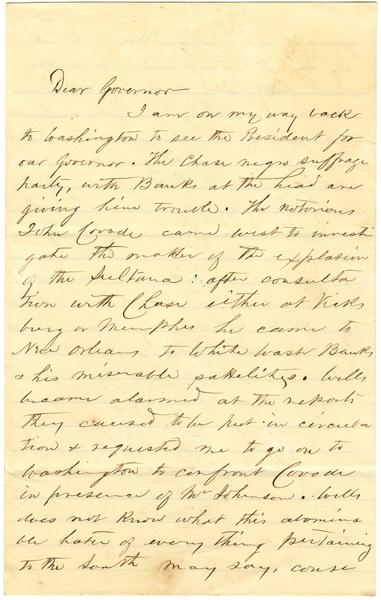 Dear Governor
I am on my way back
to Washington to see the President for
our Governor. The Chase negro suffrage
party, with Banks at the head are
giving him trouble. The notorious
John Covode came west to investi
gate the matter of the explosion
of the Sultana: after consulta
tion with Chase either at Vicks
burg or Memphis he came to
New Orleans to White Wash Banks
& his miserable satelites. Wells
became alarmed at the reports
they caused to be put in circula
tion & requested me to go on to
Washington to confront Covode
in presence of Mr Johnson. Wells
does not know what this abomina
ble hater of every thing pertaining
to the South may say, conse